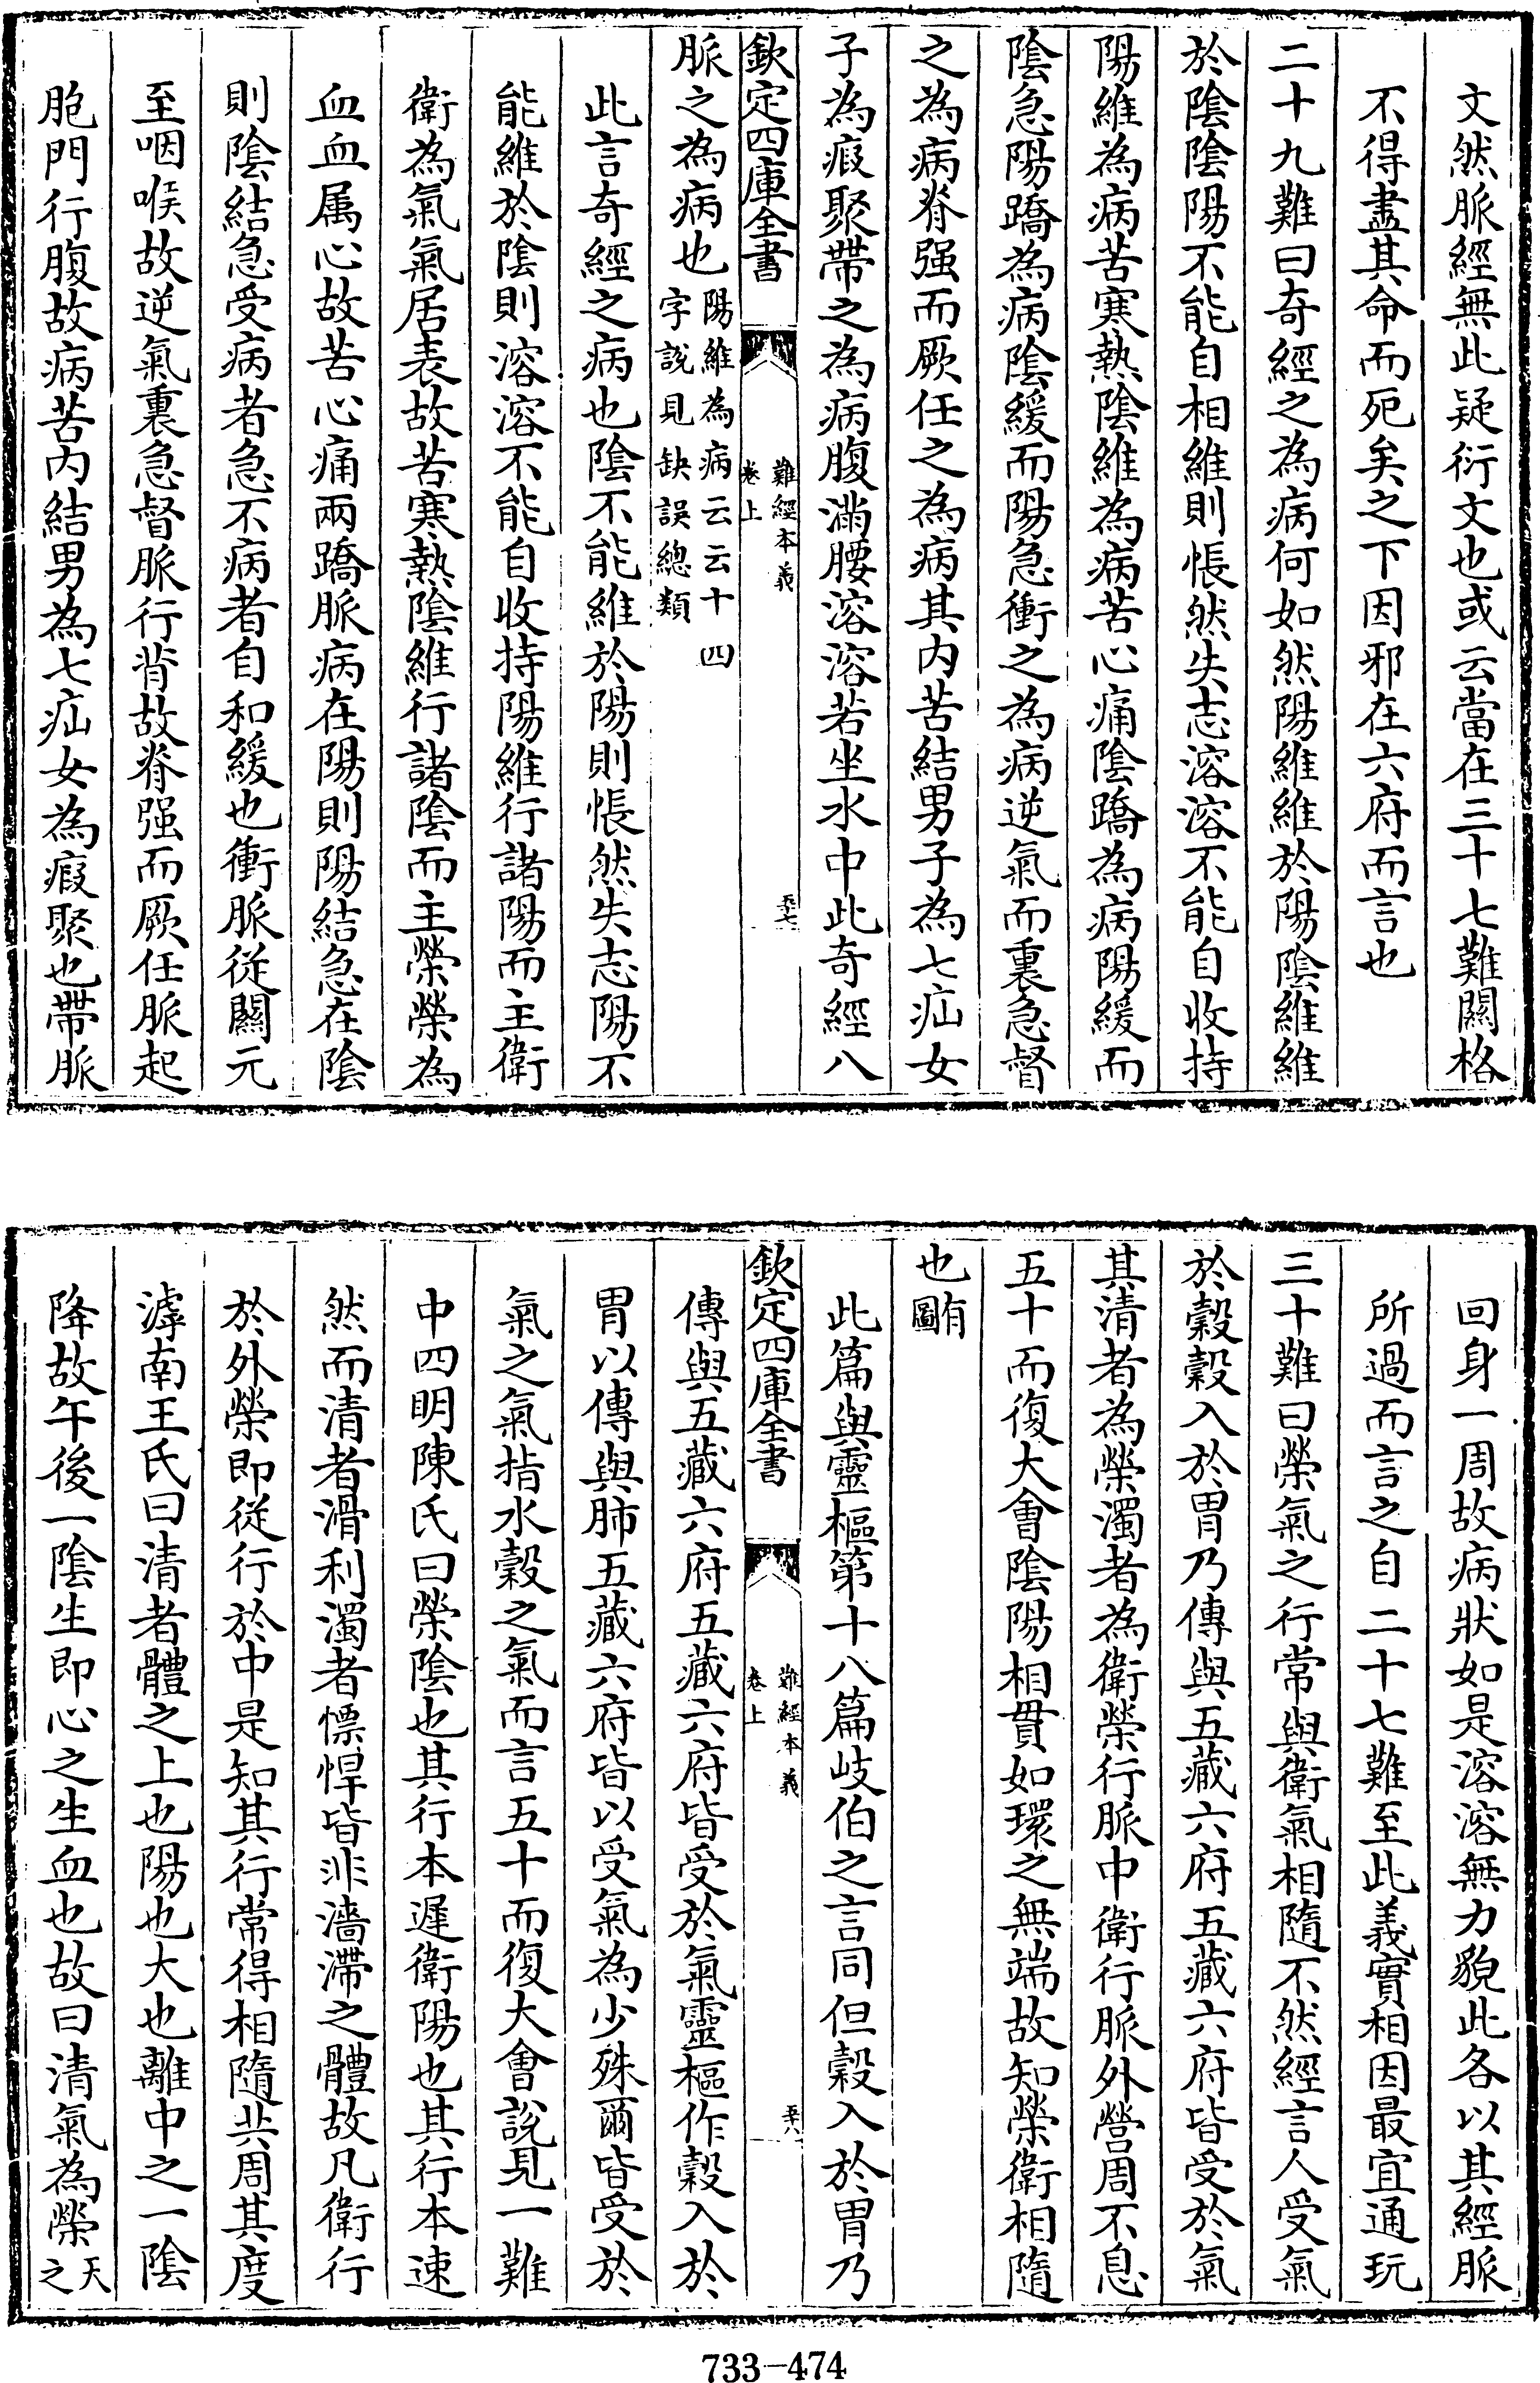 文然脈經無此疑衍文也或云當在三十七難關格
不得盡其命而死矣之下因邪在六府而言也
二十九難曰奇經之為病何如然陽維維於陽陰維維
於陰陰陽不能自相維則悵然失志溶溶不能自收持
陽維為病苦寒熱陰維為病苦心痛陰蹻為病陽緩而
陰急陽蹻為病陰緩而陽急衝之為病逆氣而裏急督
之為病脊强而厥任之為病其內苦結男子為七疝女
子為瘕聚帶之為病腹滿腰溶溶若坐水中此奇經八
欽定四庫全書
難經本義
卷上
五七
脈之為病也陽維為病云云十四
字說見缺誤總類
此言奇經之病也陰不能維於陽則悵然失志陽不
能維於陰則溶溶不能自收持陽維行諸陽而主衛
衛為氣氣居表故苦寒熱陰維行諸陰而主榮榮為
血血属心故苦心痛兩蹻脈病在陽則陽結急在陰
則陰結急受病者急不病者自和緩也衝脈從關元
至咽喉故逆氣裏急督脈行背故脊强而厥任脈起
胞門行腹故病苦內結男為七疝女為瘕聚也帶脈
回身一周故病狀如是溶溶無力貌此各以其經脈
所過而言之自二十七難至此義實相因最宜通玩
三十難曰榮氣之行常與衛氣相隨不然經言人受氣
於穀穀入於胃乃傳與五藏六府五藏六府皆受於氣
其清者為榮濁者為衛榮行脈中衛行脈外營周不息
五十而復大會陰陽相貫如環之無端故知榮衛相隨
也有
圖
此篇與靈樞第十八篇岐伯之言同但穀入於胃乃
欽定四庫全書
難經本義
卷上
五八
傳與五藏六府五藏六府皆受於氣靈樞作穀入於
胃以傳與肺五藏六府皆以受氣為少殊爾皆受於
氣之氣指水穀之氣而言五十而復大會說見一難
中四明陳氏曰榮陰也其行本遲衛陽也其行本速
然而清者滑利濁者慓悍皆非濇滯之體故凡衛行
於外榮即從行於中是知其行常得相隨共周其度
滹南王氏曰清者體之上也陽也火也離中之一陰
降故午後一陰生即心之生血也故曰清氣為榮天
之
733-474